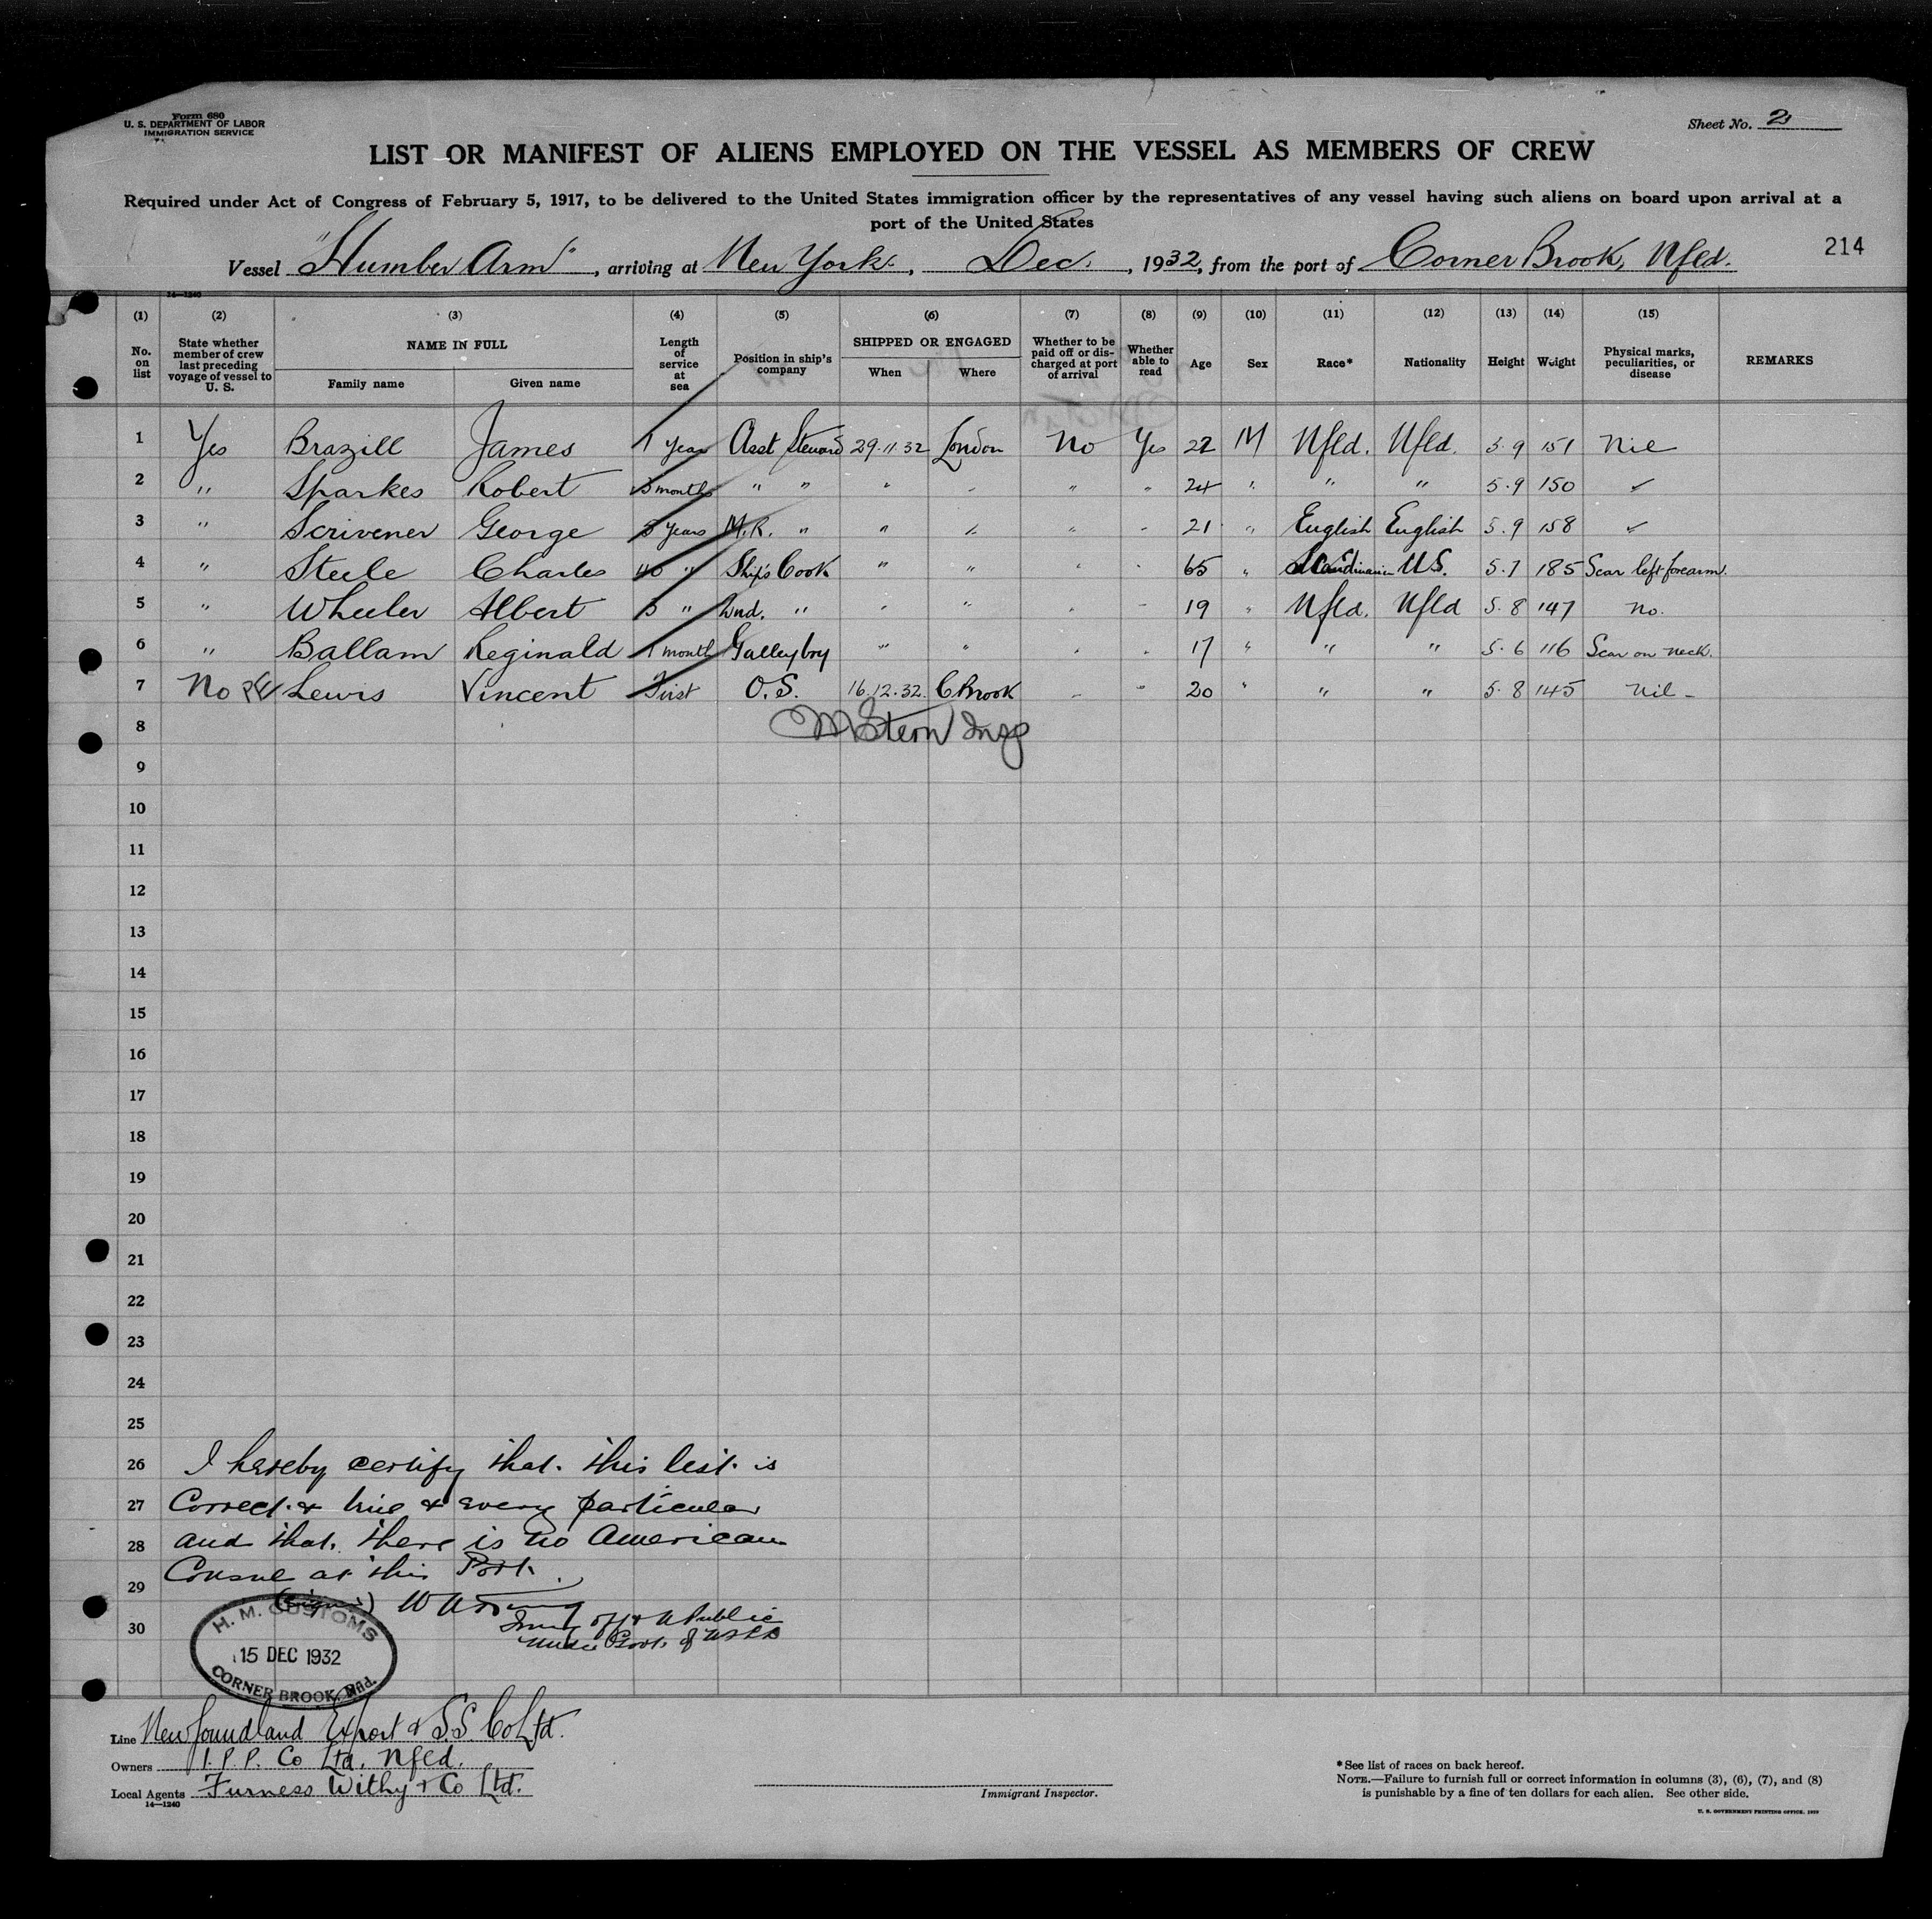 Form 680
U. S. DEPARTMENT OF LABOR
IMMIGRATION SERVICE
Sheet No. 2
LIST OR MANIFEST OF ALIENS EMPLOYED ON THE VESSEL AS MEMBERS OF CREW
Required under Act of Congress of February 5, 1917, to be delivered to the United States immigration officer by the representatives of any vessel having such aliens on board upon arrival at a
port of the United States
Vessel "Humber Arm", arriving at New York, Dec., 1932, from the port of Corner Brook, Nfld.
214
14—1240
(1) (2) (3) (4) (5) (6) (7) (8) (9) (10) (11) (12) (13) (14) (15)
No. on list
State whether member of crew last preceding voyage of vessel to U. S.
NAME IN FULL
Family name
Given name
Length of service at sea
Position in ship's company
SHIPPED OR ENGAGED
When
Where
Whether to be paid off or discharged at port of arrival
Whether able to read
Age
Sex
Race*
Nationality
Height
Weight
Physical marks, peculiarities, or disease
REMARKS
1 Yes Brazill James 1 Year Asst Steward 29.11.32 London No Yes 22 M Nfld. Nfld. 5.9 151 Nil
2 " Sparkes Robert 5 months " " " " " " 24 " " " 5.9 150
3 " Scrivener George 3 Years M.R. " " " " " 21 " English English 5.9 158
4 " Steele Charles 40 " Ship's Cook " " " " 65 " Scandinavian U.S. 5.7 185 Scar left forearm.
5 " Wheeler Albert 3 " 2nd. " " " " " 19 " Nfld. Nfld 5.8 147 No.
6 " Ballam Reginald 1 month Galleyboy " " " " 17 " " " 5.6 116 Scar on neck.
7 No PE Lewis Vincent First O.S. 16.12.32. C Brook " " 20 " " " 5.8 145 Nil -
M Stern Insp
8
9
10
11
12
13
14
15
16
17
18
19
20
21
22
23
24
25
26 I hereby certify that this list is
27 Correct & true & every particular
28 and that there is no American
29 Consul at this Port.
(signed)
30
H. M. CUSTOMS
15 DEC 1932
CORNER BROOK, Nfld.
Line Newfoundland Export & S.S. Co Ltd.
Owners I.P.P. Co Ltd, Nfld.
Local Agents Furness Withy & Co Ltd.
14—1240
Immigrant Inspector.
*See list of races on back hereof.
NOTE.—Failure to furnish full or correct information in columns (3), (6), (7), and (8)
is punishable by a fine of ten dollars for each alien. See other side.
U. S. GOVERNMENT PRINTING OFFICE: 1929